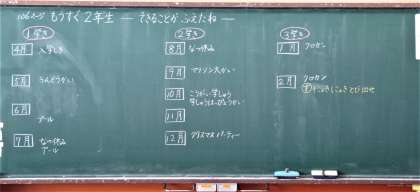 106ページ もうすぐ2年生 ― できることが ふえたね ―
1学き
4月 入学しき
5月 うんどうかい
6月
プール
7月 なつ休み
プール
2学き
8月 なつ休み
9月 マラソン大かい
10月 こうがい学しゅう
学しゅうはっぴょうかい
11月
12月 クリスマスパーティー
3学き
1月 クロカン
2月 クロカン